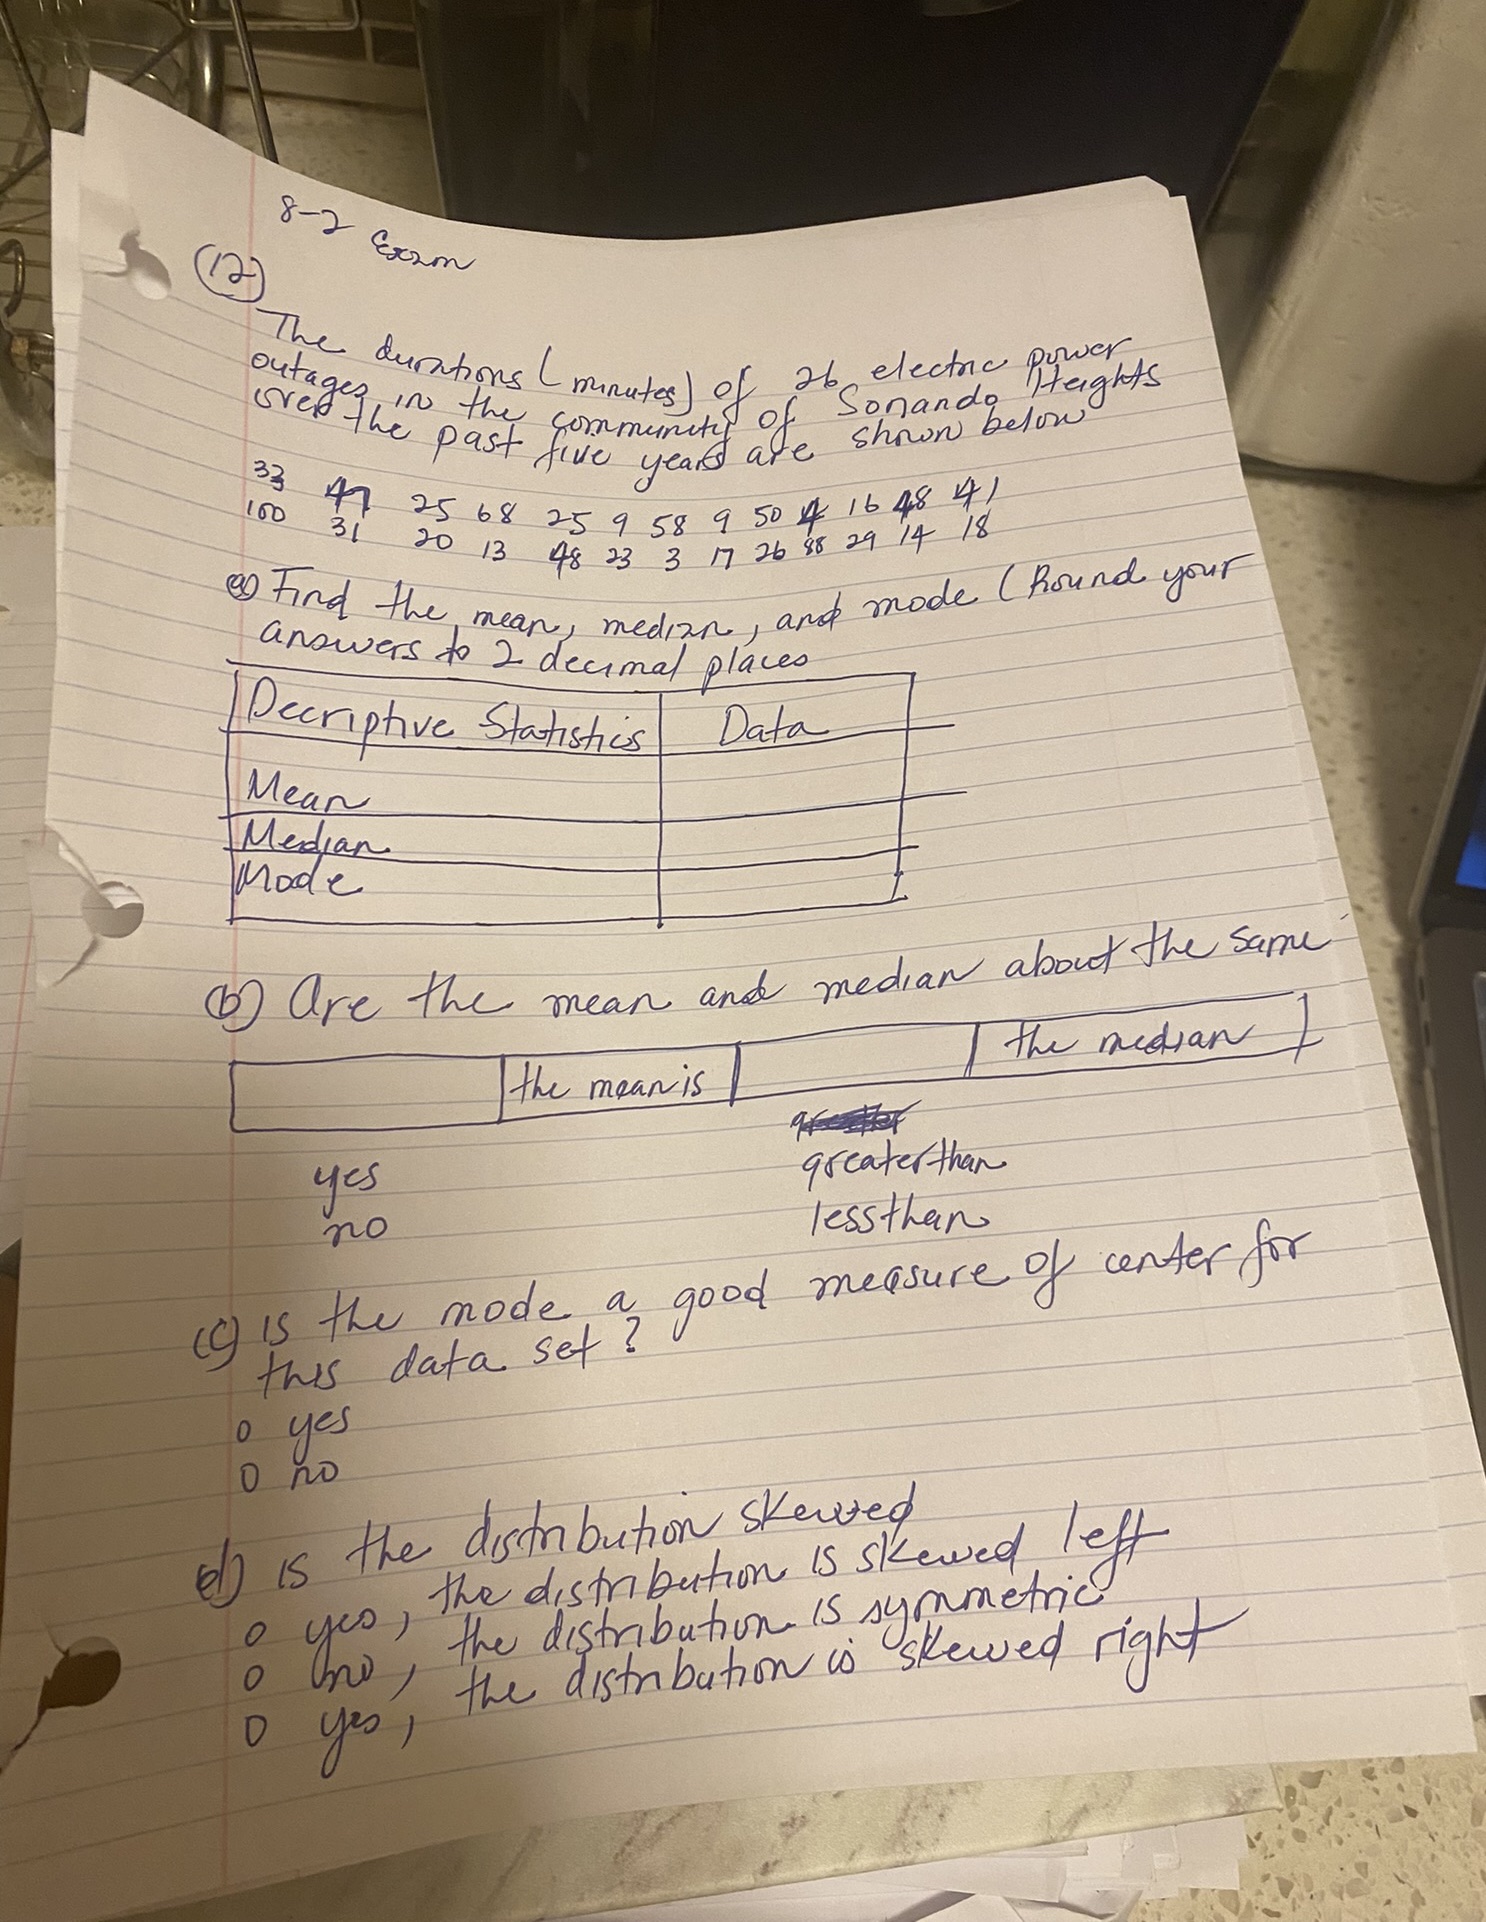 8-2 Exam
(12)
The durations (minutes) of 26 electric power
outages in the community of Sonando Heights
over the past five years are shown below
33 47 25 68 25 9 58 9 50 4 16 48 41
100 31 20 13 48 23 3 17 26 88 29 14 18
a) Find the mean, median, and mode (Round your
answers to 2 decimal places
Decriptive Statistics Data
Mean
Median
Mode
(b) Are the mean and median about the same
the mean is the median
greater than
yes
less than
no
(c) is the mode a good measure of center for
this data set?
o yes
o no
d) is the distribution skewed
o yes, the distribution is skewed left
o no, the distribution is symmetric
o yes, the distribution is skewed right